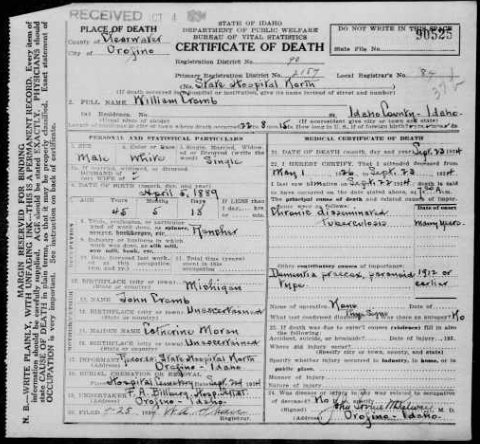 RECEIVED OCT 4
PLACE OF DEATH
County of Clearwater
City of Orofino
STATE OF IDAHO
DEPARTMENT OF PUBLIC WELFARE
BUREAU OF VITAL STATISTICS
CERTIFICATE OF DEATH
DO NOT WRITE IN THIS SPACE
90525
State File No.
Registration District No. 90
Primary Registration District No. 2157
Local Registrar's No.
(No. State Hospital North
(If death occurred in hospital or institution, give its name instead of street and number)
2. FULL NAME William Cromb
(a) Residence. No. Idaho County - Idaho
(Usual place of abode)
(If nonresident give city or town and state)
Length of residence in city or town where death occurred 22 8 15 How long in U. S., if of foreign birth?
PERSONAL AND STATISTICAL PARTICULARS
MEDICAL CERTIFICATE OF DEATH
3. SEX Male
4. Color or Race White
5. Single, Married, Widowed, or Divorced (write the word) Single
21. DATE OF DEATH (month, day, and year) Sept 23 1934
22. I HEREBY CERTIFY, That I attended deceased from
May 1 1926 Sept 23 1934
I last saw him alive on Sept 22 1934
HUSBAND of
6. DATE OF BIRTH (month, day, and year) April 5, 1889
7. AGE Years 45 Months 5 Days 18 If LESS than
The principal cause of death and related causes of
Date of onset
Chronic disseminated Tuberculosis many years
8. Trade, profession, or particular kind of work done, as spinner, sawyer, bookkeeper, etc. Rancher
9. Industry or business in which work was done, as silk mill, saw mill, bank, etc.
11. Total time (years) spent in this occupation
Other contributory causes of importance:
Dementia praecox, paranoid type 1912 or earlier
12. BIRTHPLACE (city or town) (State or country) Michigan
13. NAME John Cromb
14. BIRTHPLACE (city or town) Unascertained
15. MAIDEN NAME Catherine Moran
16. BIRTHPLACE (city or town) Unascertained
17. INFORMANT Records, State Hospital North
Orofino - Idaho
18. BURIAL, CREMATION OR REMOVAL
Hospital Cemetery Sept 24 1934
19. UNDERTAKER Orofino - Idaho
20. FILED 9-25 1934
Name of operation None
What test confirmed diagnosis? Was there an autopsy? No
23. If death was due to external causes (violence) fill in also the following:
Accident, suicide, or homicide? Date of injury
Where did injury occur?
(Specify city or town, county, and state)
Specify whether injury occurred in industry, in home, or in public place.
Manner of injury
Nature of injury
24. Was disease or injury in any way related to occupation of deceased? No
(Signed) M. D.
Orofino - Idaho
MARGIN RESERVED FOR BINDING
N. B.—WRITE PLAINLY, WITH UNFADING INK—THIS IS A PERMANENT RECORD. Every item of
information should be carefully supplied. AGE should be stated EXACTLY. PHYSICIANS should
state CAUSE OF DEATH in plain terms, so that it may be properly classified. Exact statement of
OCCUPATION is very important. See instruction on back of certificate.